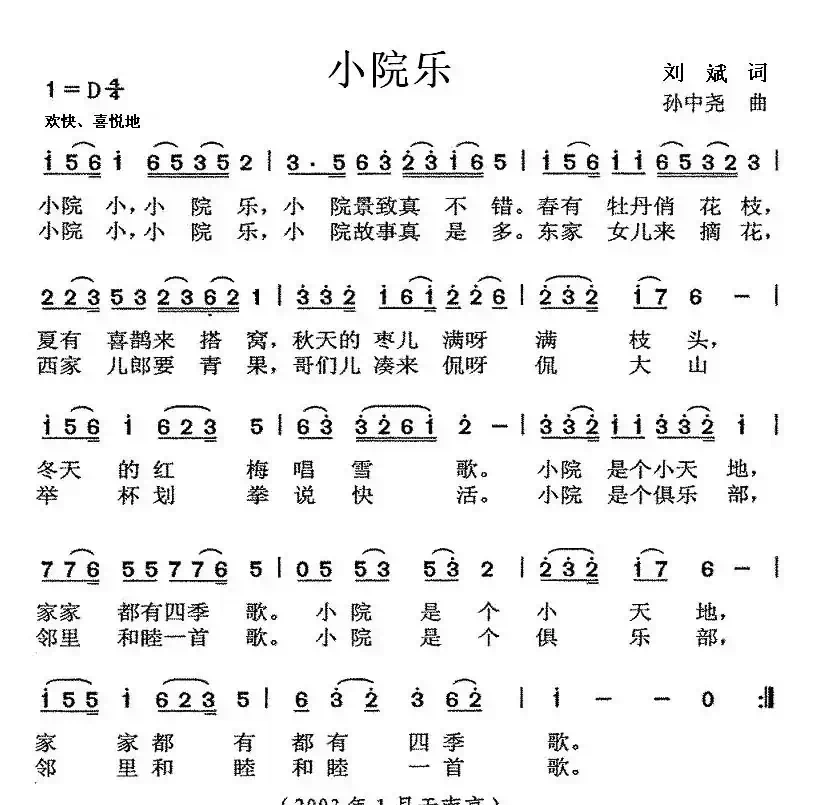 小院乐
1=D 4/4
刘 斌 词
孙中尧 曲
欢快、喜悦地
i 5 6 i 6 5 3 5 2 | 3 · 5 6 3 2 3 i 6 5 5 | i 5 6 i i 6 5 3 2 3 |
小院 小,小 院 乐,小 院景致真 不 错。春有 牡丹俏 花 枝,
小院 小,小 院 乐,小 院故事真 是 多。东家 女儿来 摘 花,
2 2 3 5 3 2 3 6 2 1 | 3 3 2 i 6 i 2 2 6 | 2 3 2 i 7 6 – |
夏有 喜鹊来 搭 窝,秋天的 枣儿 满呀 满 枝 头,
西家 儿郎要 青 果,哥们儿 凑来 侃呀 侃 大 山
i 5 6 i 6 2 3 5 | 6 3 3 2 6 i 2 – | 3 3 2 i i 3 3 2 i |
冬天 的 红 梅 唱 雪 歌。 小院 是个小天 地,
举 杯 划 拳 说 快 活。 小院 是个俱乐 部,
7 7 6 5 5 7 7 6 5 | 0 5 5 3 5 3 2 | 2 3 2 i 7 6 – |
家家 都有四季 歌。 小 院 是 个 小 天 地,
邻里 和睦一首 歌。 小 院 是 个 俱 乐 部,
i 5 5 i 6 2 3 5 | 6 3 2 3 6 2 | i – – 0 :||
家 家 都 有 都 有 四 季 歌。
邻 里 和 睦 和 睦 一 首 歌。